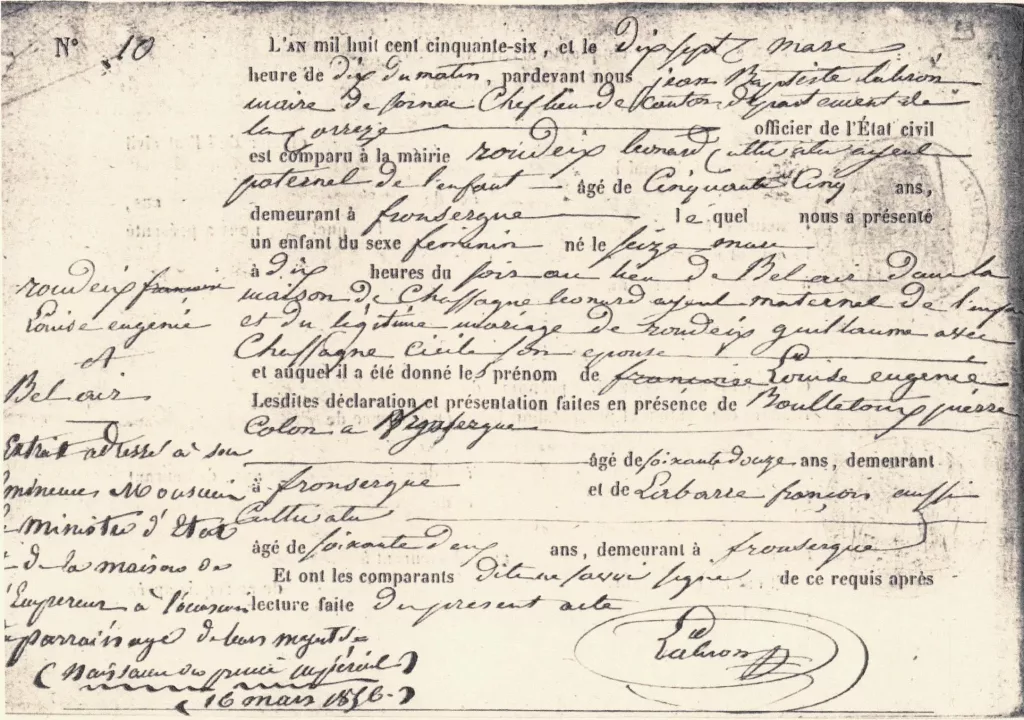 N° 10
L'AN mil huit cent cinquante-six, et le dix sept mars
heure de dix du matin, pardevant nous jean Baptiste Labron
maire de Sornac Chef lieu de Canton département de
la Corrèze officier de l'État civil
est comparu à la mairie roudeix leonard Cultivateur ayeul
paternel de l'enfant âgé de Cinquante Cinq ans,
demeurant à fronsergue le quel nous a présenté
un enfant du sexe feminin né le seize mars
à dix heures du soir au lieu de Bel air dans la
maison de Chassagne leonard ayeul maternel de l'enfant
et du légitime mariage de roudeix guillaume avec
Chassagne Cicile son epouse
et auquel il a été donné les prénom de francoise Louise eugenie
Lesdites déclaration et présentation faites en présence de Boulletoux pierre
Colon a fronsergue
âgé de soixante douze ans, demeurant
à fronsergue et de Labarre françois aussi
Cultivateur
âgé de soixante deux ans, demeurant à fronsergue
Et ont les comparants dit ne savoir signer de ce requis après
lecture faite du present acte
Labron
roudeix francoise
Louise eugenié
A
Bel air
Extrait adressé à son
Eminences Monsieur
le ministre d'Etat
de la maison de
l'Empereur à l'occasion
parrainage de leurs majestés
(Naissance du prince impérial)
(16 mars 1856-)